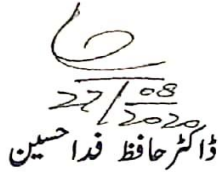 22/08/2020
ڈاکٹر حافظ فدا حسین